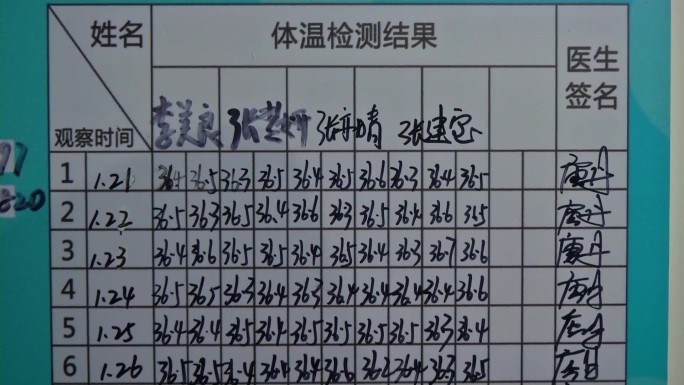 姓名 体温检测结果 医生
签名
观察时间 李美良 张 张 晴 张建宝
1 1.21 36.5 36.5 36.3 36.5 36.4 36.5 36.6 36.3 36.4 36.5
2 1.22 36.5 36.3 36.5 36.4 36.6 36.3 36.5 36.4 36.6 36.5
3 1.23 36.4 36.6 36.5 36.5 36.4 36.5 36.4 36.3 36.7 36.6
4 1.24 36.5 36.5 36.3 36.4 36.3 36.4 36.4 36.4 36.4 36.6
5 1.25 36.4 36.4 36.5 36.4 36.5 36.5 36.5 36.5 36.3 36.4
6 1.26 36.5 36.5 36.4 36.4 36.4 36.6 36.2 36.4 36.3 36.5